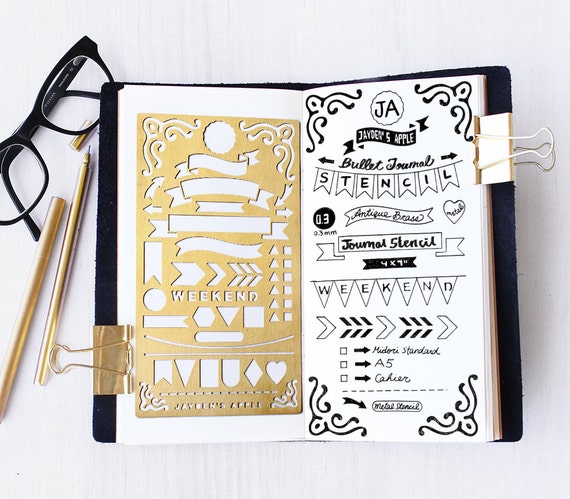 WEEKEND
JAYDEN'S APPLE
JA
JAYDEN'S APPLE
Bullet Journal
STENCIL
0.3
0.3mm
Antique Brass
metal
Journal Stencil
4 X 7"
WEEKEND
Midori Standard
A5
Cahier
metal stencil